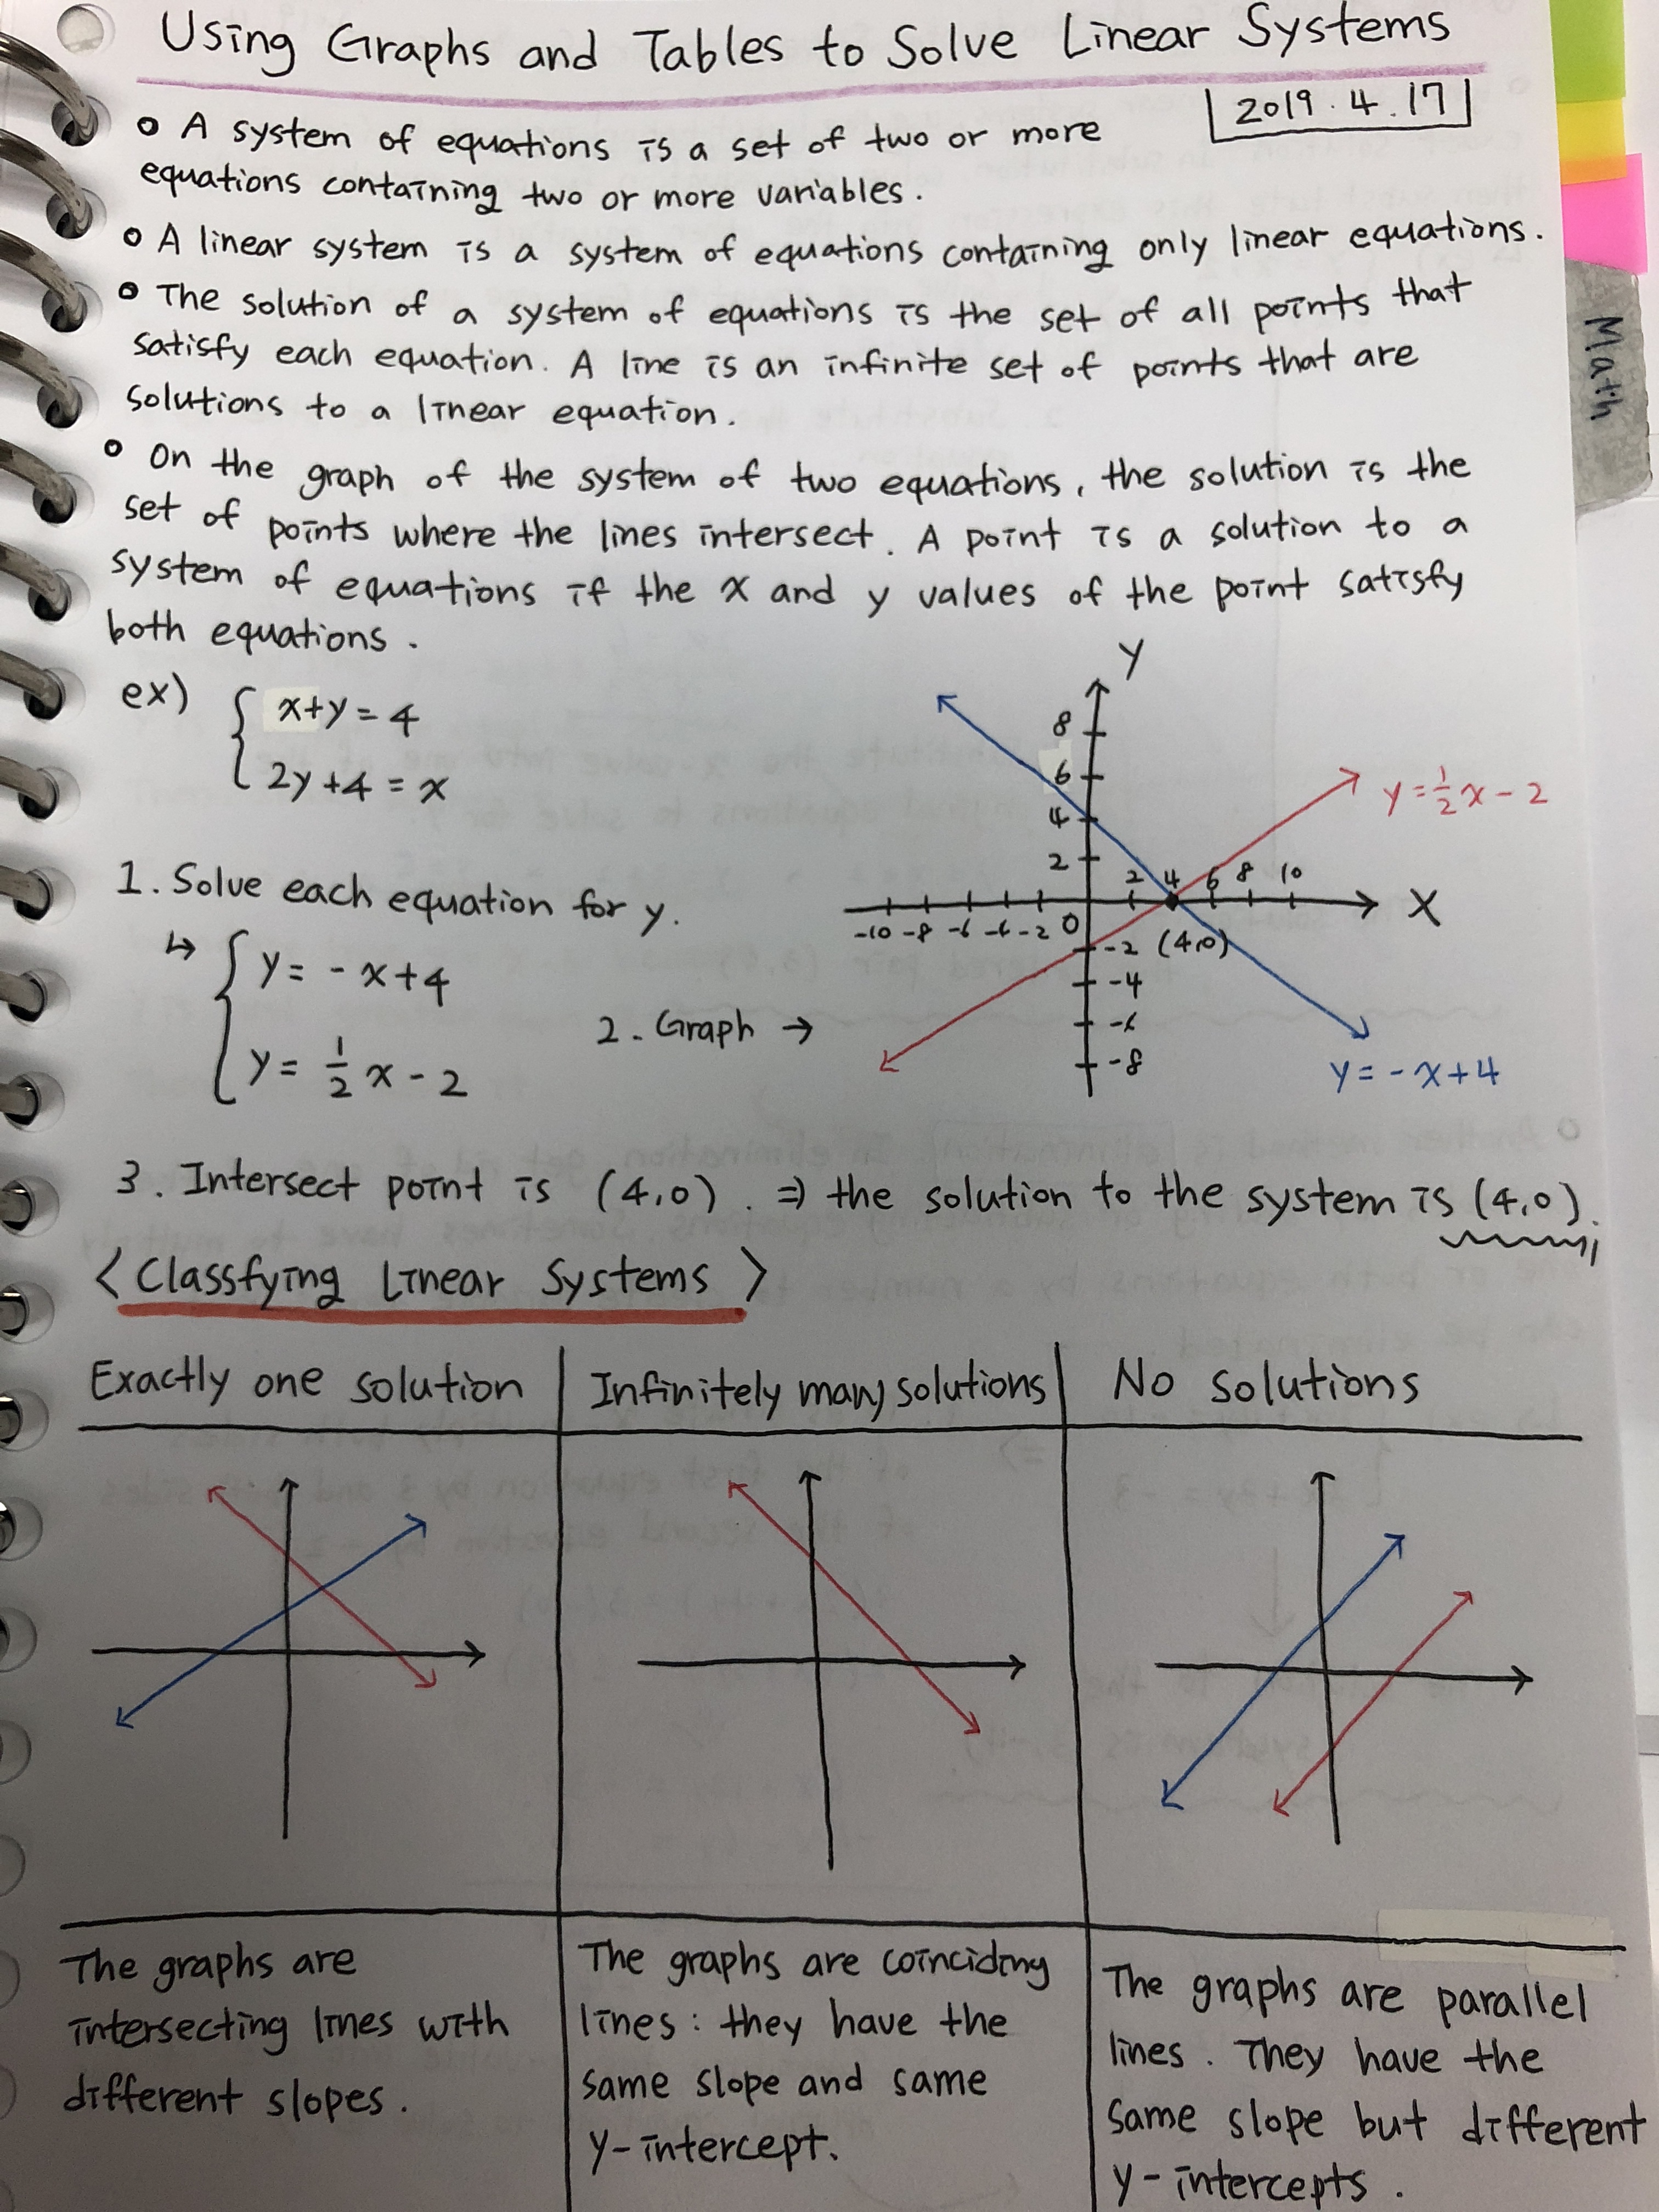 Using Graphs and Tables to Solve Linear Systems
2019.4.17
o A system of equations is a set of two or more
equations containing two or more variables.
o A linear system is a system of equations containing only linear equations.
o The solution of a system of equations is the set of all points that
satisfy each equation. A line is an infinite set of points that are
solutions to a linear equation.
o On the graph of the system of two equations, the solution is the
set of points where the lines intersect. A point is a solution to a
system of equations if the x and y values of the point satisfy
both equations.
Math
ex) { x+y=4
2y+4=x
1. Solve each equation for y.
↳ { y = -x+4
y = 1/2 x - 2
2. Graph →
Y
8
6
4
2
y=1/2x-2
2 4 6 8 10
X
-10 -8 -6 -6 -2 0
-2 (4,0)
-4
-6
-8
y=-x+4
3. Intersect point is (4,0). ⇒ the solution to the system is (4,0).
<Classfying Linear Systems>
Exactly one solution
Infinitely many solutions
No solutions
The graphs are
intersecting lines with
different slopes.
The graphs are coinciding
lines: they have the
same slope and same
y-intercept.
The graphs are parallel
lines. They have the
same slope but different
y-intercepts.